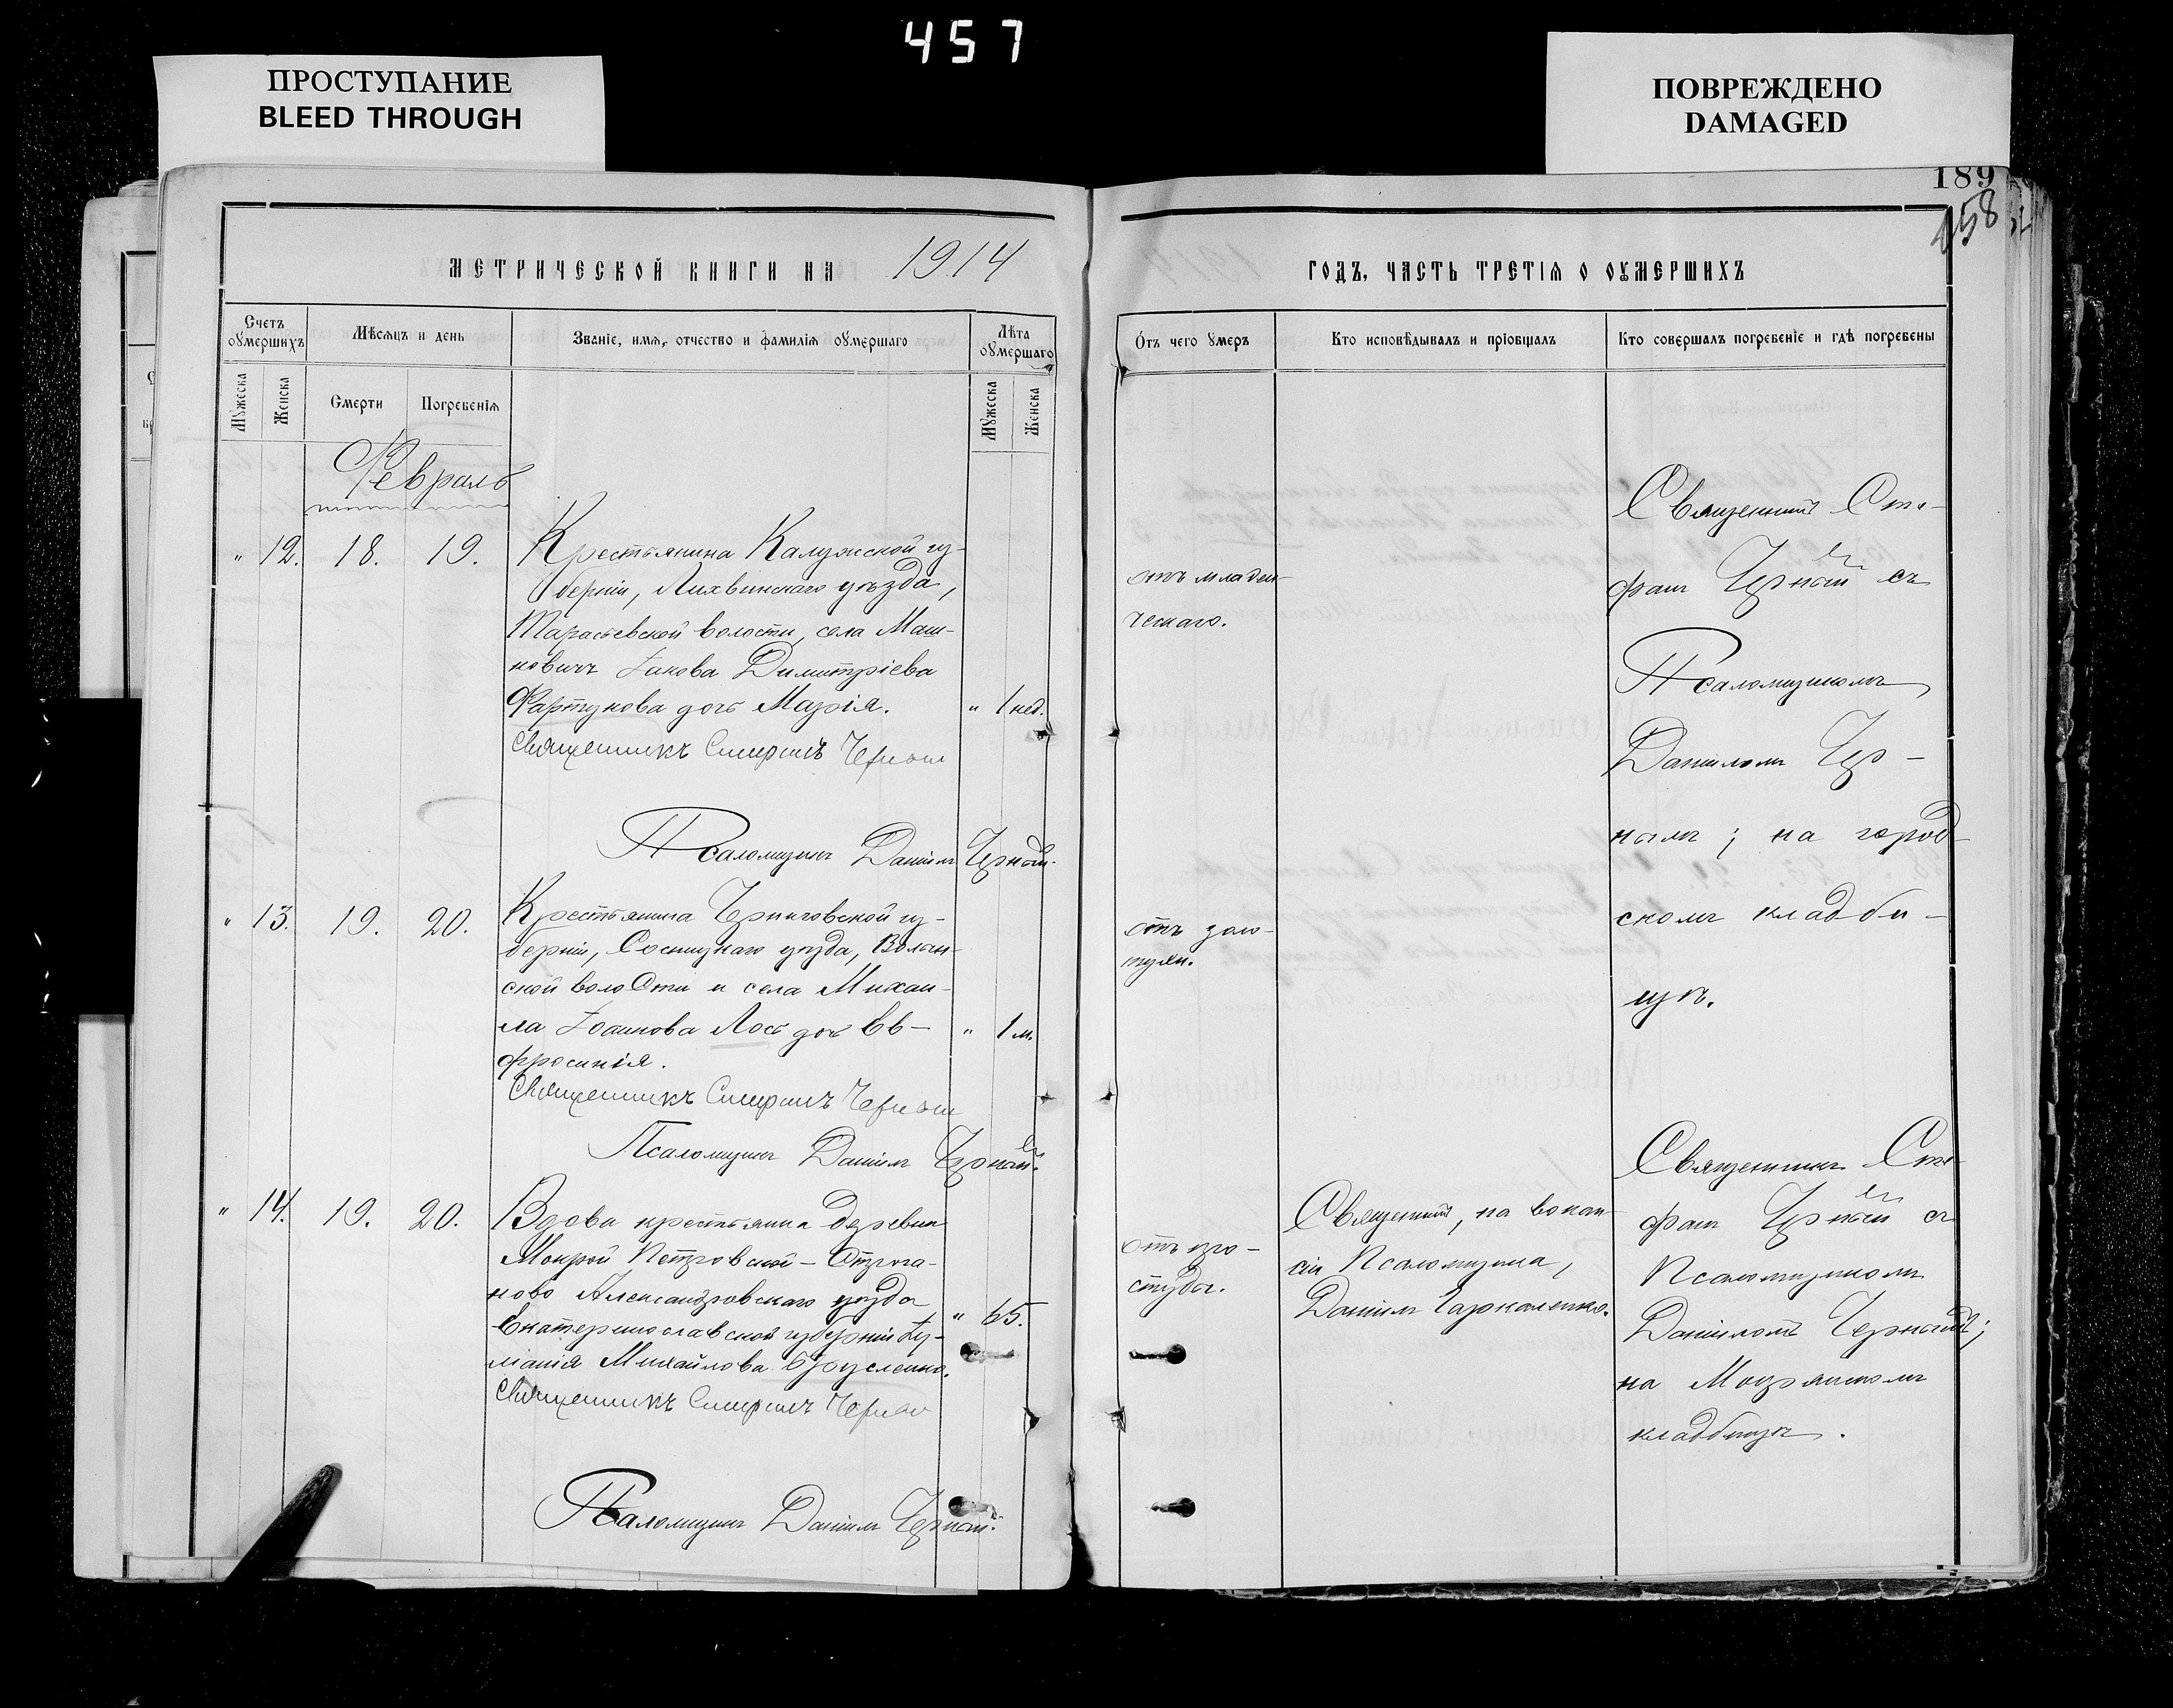 457
ПРОСТУПАНИЕ
BLEED THROUGH
ПОВРЕЖДЕНО
DAMAGED
189
158
МЕТРИЧЕСКОЙ КНИГИ НА 1914
ГОДЪ, ЧАСТЬ ТРЕТІЯ О ОУМЕРШИХЪ
Счетъ оумершихъ
Мѣсяцъ и день
Званіе, имя, отчество и фамилія оумершаго
Лѣта оумершаго
Отъ чего умеръ
Кто исповѣдывалъ и пріобщалъ
Кто совершалъ погребеніе и гдѣ погребены
Мужеска
Женска
Смерти
Погребенія
Мужеска
Женска
Февраль
" 12. 18. 19. Крестьянина Калужской гу-
берніи, Лихвинскаго уѣзда,
волости, села Маш-
ковичъ Іакова Димитріева
Фартукова дочь Марія. " 1 нед.
Священникъ Стефанъ Черный
Псаломщикъ Даніилъ Черный.
отъ младен-
ческаго.
Священникъ Сте-
фанъ Черный съ
Псаломщикомъ
Даніиломъ Чер-
нымъ; на город-
скомъ кладби-
щѣ.
" 13. 19. 20. Крестьянина Черниговской гу-
берніи, Сосницкаго уѣзда, Волын-
ской волости и села Михаи-
ла Іоаннова Лось дочь Ев-
фросинія. " 1 м.
Священникъ Стефанъ Черный
Псаломщикъ Даніилъ Черный.
отъ золо-
тухи.
" 14. 19. 20. Вдова крестьянина деревни
Мокрой Петровской-
Александровскаго уѣзда
Екатеринославской губерніи Іу-
ліанія Михайлова " 65.
Священникъ Стефанъ Черный
Псаломщикъ Даніилъ Черный.
отъ про-
студы.
Священникъ, на вакан-
сіи Псаломщика,
Даніилъ
Священникъ Сте-
фанъ Черный съ
Псаломщикомъ
Даніиломъ Чернымъ;
на Мокрянскомъ
кладбищѣ.